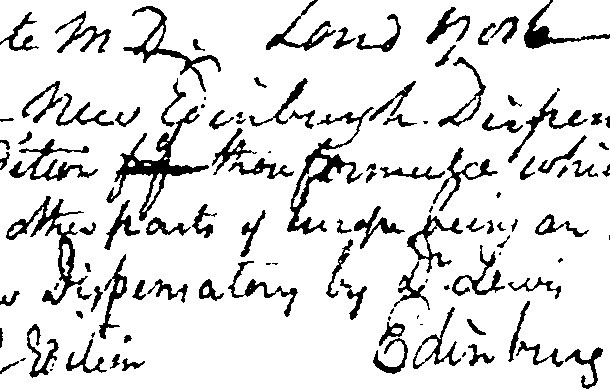 te M D. Lond York
New Edinburgh Dispen
dition of those formulae whi
other parts of europe being an
w Dispensatory by Dr. Lewis
Edinburg